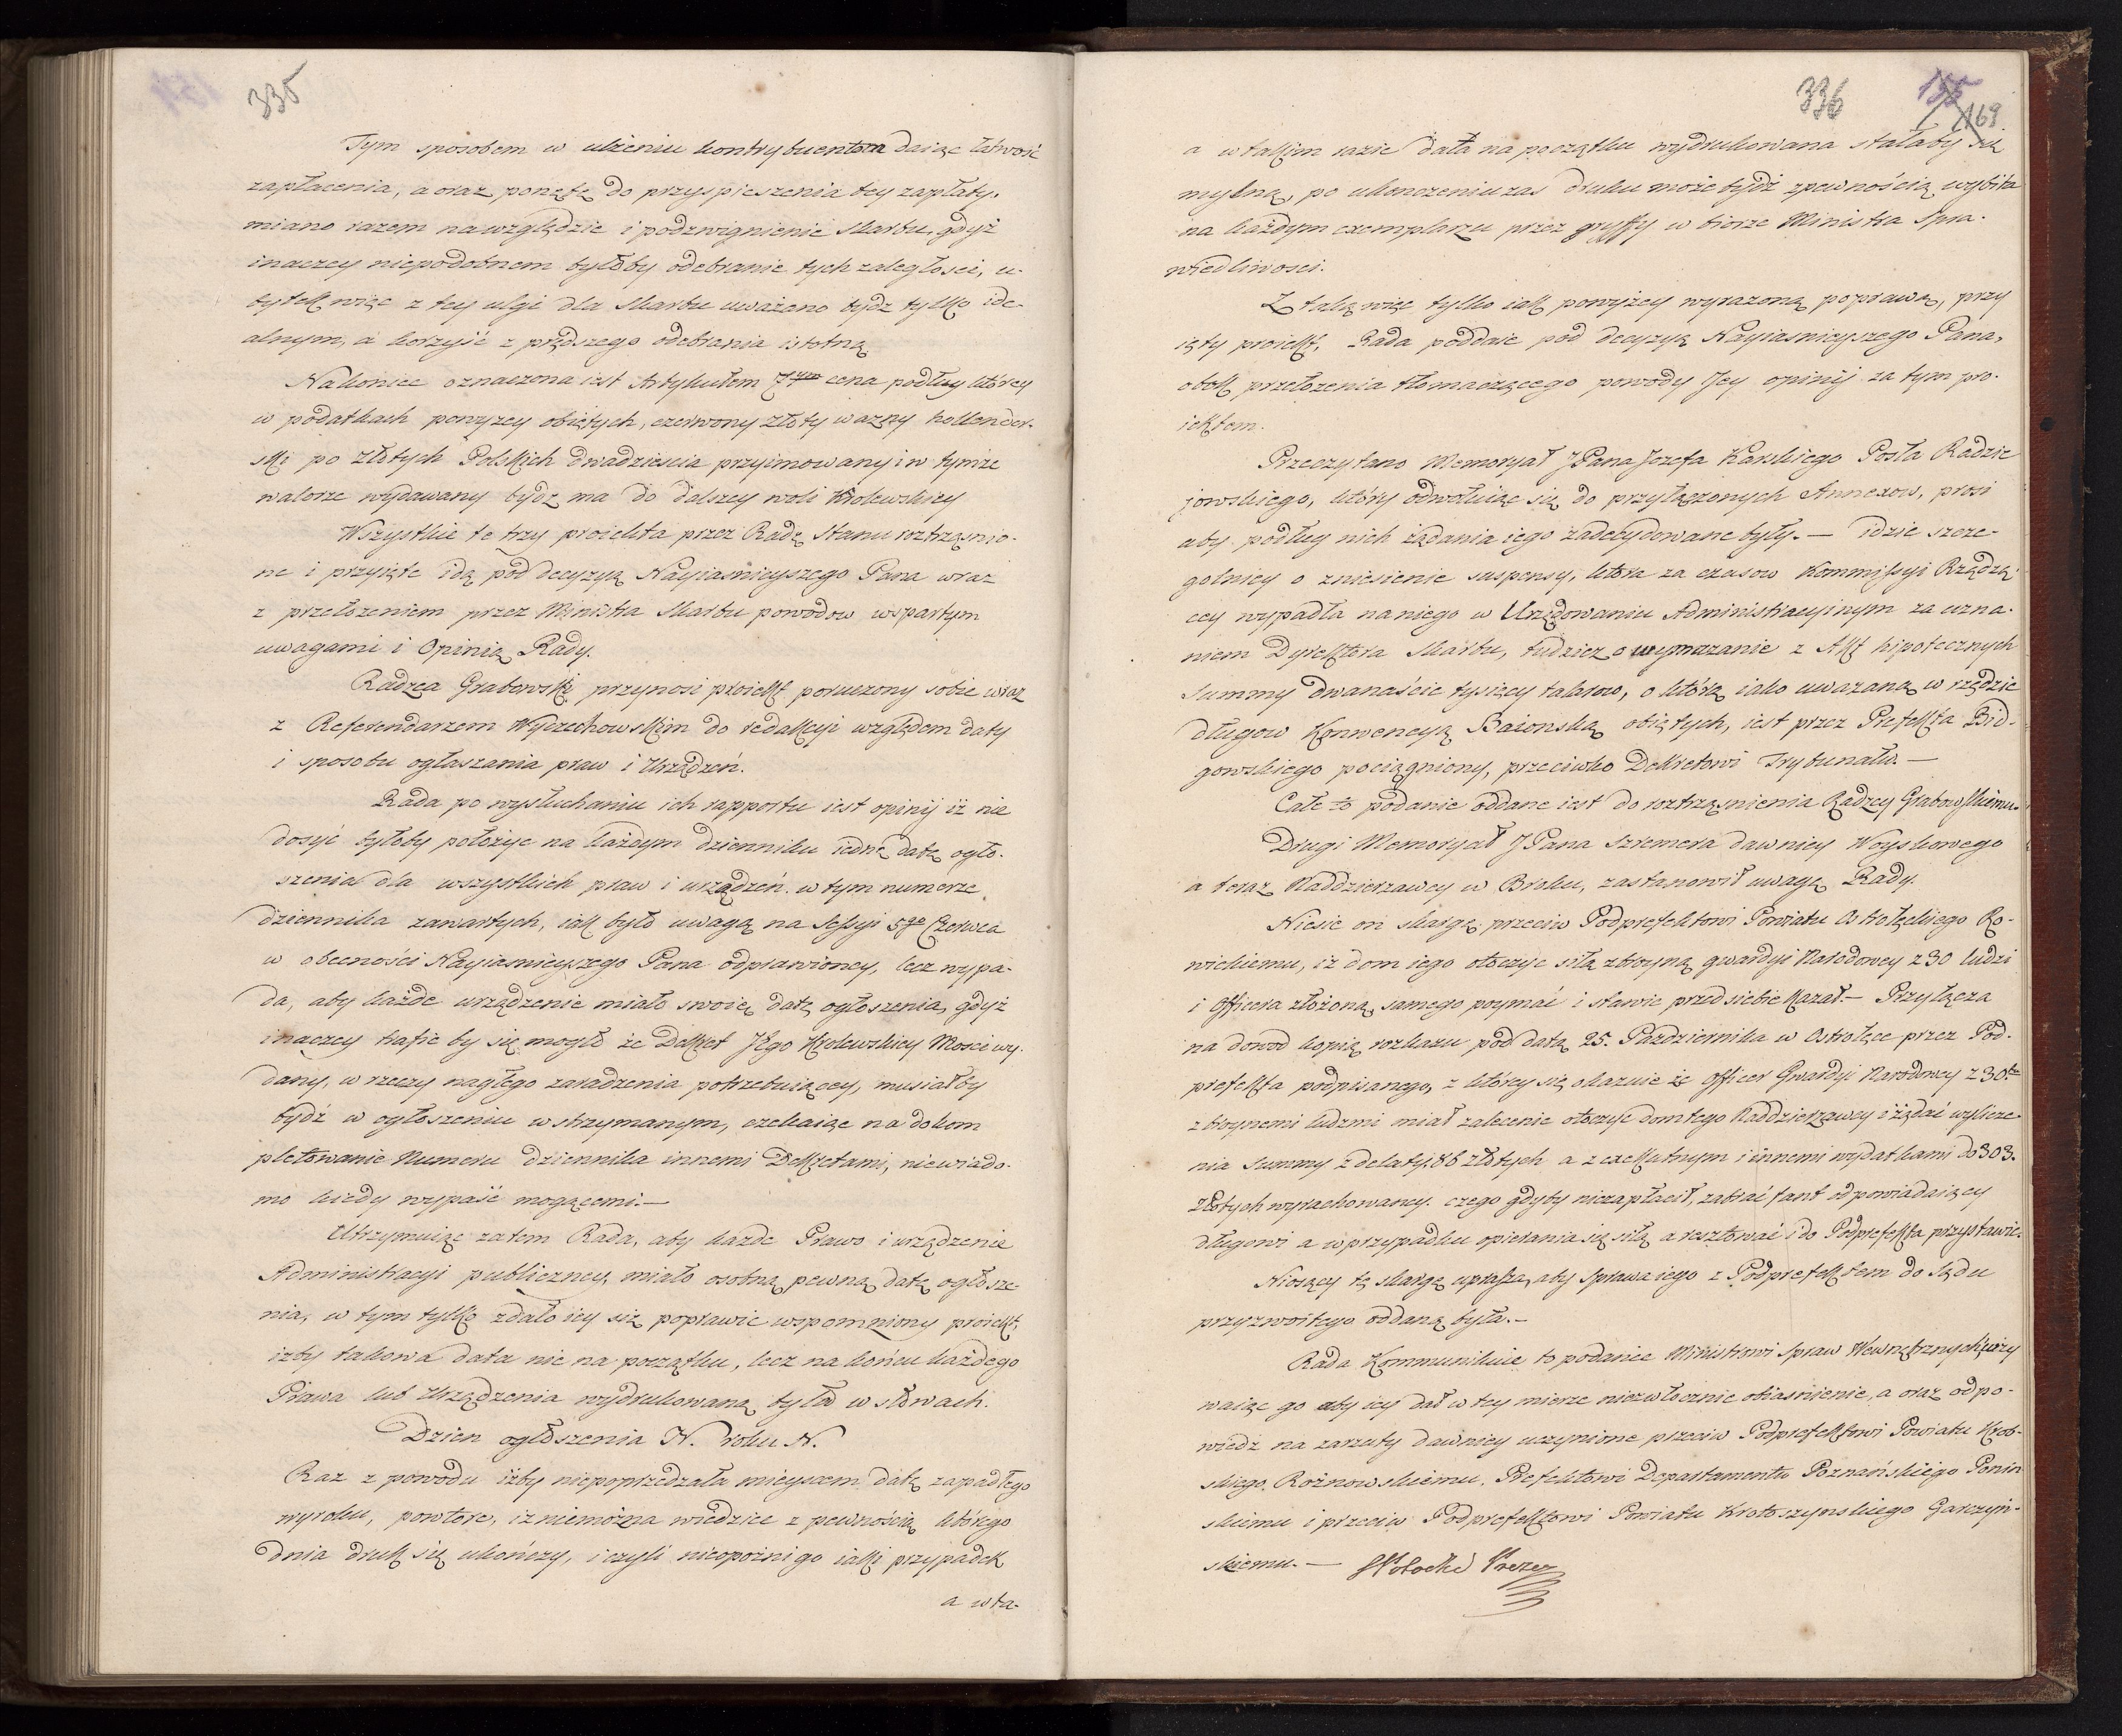 335
Tym sposobem w ulżeniu kontrybuentom daiąc łatwość
zapłacenia, a oraz ponętę do przyspieszenia tey zapłaty.
miano razem na względzie i podzwignienie Skarbu, gdyż
inaczey niepodobnem byłoby odebranie tych zaległosci, u-
bytek więc z tey ulgi dla Skarbu uważano bydz tylko ide-
alnym, a korzyść z prędszego odebrania istotną
Nakoniec oznaczona iest Artykułem 7ym cena podług ktorey
w podatkach powyzey obiętych, czerwony złoty wazny hollender-
ski po Złotych Polskich dwadziescia przyimowany i w tymże
walorze wydawany bydz ma do dalszey woli Krolewskiey
Wszystkie te trzy proiekta przez Radę Stanu roztrząsnio-
ne i przyięte idą pod decyzyą Nayiasnieyszego Pana wraz
z przełożeniem przez Ministra Skarbu powodow wspartym
uwagami i Opinią Rady.
Radzca Grabowski przynosi proiekt poruczony sobie wraz
z Referendarzem Wyczechowskim do redakcyi względem daty
i sposobu ogłaszania praw i Urządzeń.
Rada po wysłuchaniu ich rapportu iest opinij iż nie
dosyć byłoby położyc na każdym dzienniku iedną datę ogło-
szenia dla wszystkich praw i urządzeń w tym numerze
dziennika zawartych, iak było uwagą na Sessyi 5go Czerwca
w obecności Nayiasnieyszego Pana odprawioney, lecz wypa-
da, aby każde urządzenie miało swoię datę ogłoszenia, gdyż
inaczey trafić by się mogło że Dekret Jego Krolewskiey Mosci wy-
dany, w rzeczy nagłego zaradzenia potrzebuiącey, musiałby
bydź w ogłoszeniu wstrzymanym, czekaiąc na dokom
pletowanie Numeru dziennika innemi Dekretami, niewiado-
mo kiedy wypaść mogącemi.—
Utrzymuiąc zatem Rada, aby kazde Prawo i urządzenie
Administracyi publiczney miało osobną pewną datę ogłosze-
nia, w tym tylko zdało iey się poprawić wspomniony proiekt,
izby takowa data nie na początku, lecz na końcu każdego
Prawa lub Urządzenia wydrukowaną była w słowach.
Dzien ogłoszenia N. roku N.
Raz z powodu iżby niepoprzedzała mieyscem datę zapadłego
wyroku, powtore, iz niemożna wiedziec z pewnością którego
dnia druk się ukończy, i czyli nieopozni go iaki przypadek
a w ta-
336
155
169
a w takim razie data na początku wydrukowana stałaby się
mylną, po ukonczeniu zas druku może bydź z pewnością wybita
na każdym exemplarzu przez gryffy w biorze Ministra Spra-
wiedliwosci.
Z taką więc tylko iak powyżey wyrazoną poprawą, przy
ięty proiekt, Rada poddaie pod decyzyą Nayiasnieyszego Pana,
obok przełozenia tłomaczącego powody Jey opinij za tym pro-
iektem.
Przeczytano Memoryał JPana Jozefa Karskiego Posła Radzie
jowskiego, który odwołuiąc się do przyłączonych Annexow, prosi
aby podług nich żądania iego zadecydowane były.— idzie szcze-
golniey o zniesienie suspensy, ktora za czasow Kommissyi Rządzą-
cey wypadła na niego w Urzędowaniu Administracyinym za uzna-
niem Dyrektora Skarbu, tudziez o wymazanie z Akt hipotecznych
Summy dwanaście tysięcy talarow, o którą iako uwazaną w rzędzie
długow Konwencyą Baionską obiętych, iest przez Prefekta Bid-
gowskiego pociągniony, przeciwko Dekretowi Trybunału.—
Całe to podanie oddane iest do roztrząsnienia Radzcy Grabowskiemu.
Drugi Memoryał JPana Szremera dawniey Woyskowego
a teraz Naddzierzawcy w Broku, zastanowił uwagę Rady.
Niesie on skargę przeciw Podprefektowi Powiatu Ostrołęckiego Ro-
wickiemu, iż dom iego otoczyc siłą zbroyną gwardyi Narodowey z 30 ludzi
i Officera złożoną, samego poymać i stawic przed siebie Kazał.— Przyłącza
na dowod kopią rozkazu pod datą 25. Pazdziernika w Ostrołęce przez Pod-
prefekta podpisanego, z którey się okazuie że Officer Gwardyi Narodowey z 30tu
zbroynemi ludzmi miał zalecenie otoczyc dom tego Naddzierzawcy i żądać wylicze-
nia Summy z delaty. 86 złotych a z exekutnym i innemi wydatkami do 303.
Złotych wyrachowaney. czego gdyby niezapłacił, zabrać fant odpowiadaiący
długowi a w przypadku opierania się siłą aresztować i do Podprefekta przystawic.
Niosący tę skargę uprasza, aby Sprawa iego z Podprefektem do Sądu
przyzwoitego oddaną była.—
Rada Kommunikuie to podanie Ministrowi Spraw Wewnętrznych, wzy
waiąc go aby iey dał w tey mierze niezwłocznie obiasnienie, a oraz odpo-
wiedz na zarzuty dawniey uczynione przeciw Podprefektowi Powiatu Krob-
skiego Rożnowskiemu, Prefektowi Departamentu Poznańskiego Ponin
skiemu i przeciw Podprefektowi Powiatu Krotoszynskiego Garczyń-
skiemu.— S Potocki Prezes